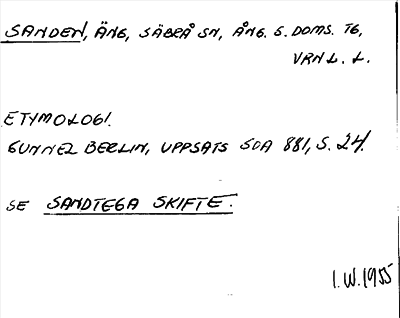 SANDEN, ÄNG, SÄBRÅ SN, ÅNG. S. DOMS. TG,
VRNL. L.
ETYMOLOGI.
GUNNEL BERLIN, UPPSATS SOA 881, S. 24.
SE SANDTEGA SKIFTE.
I.W. 1955